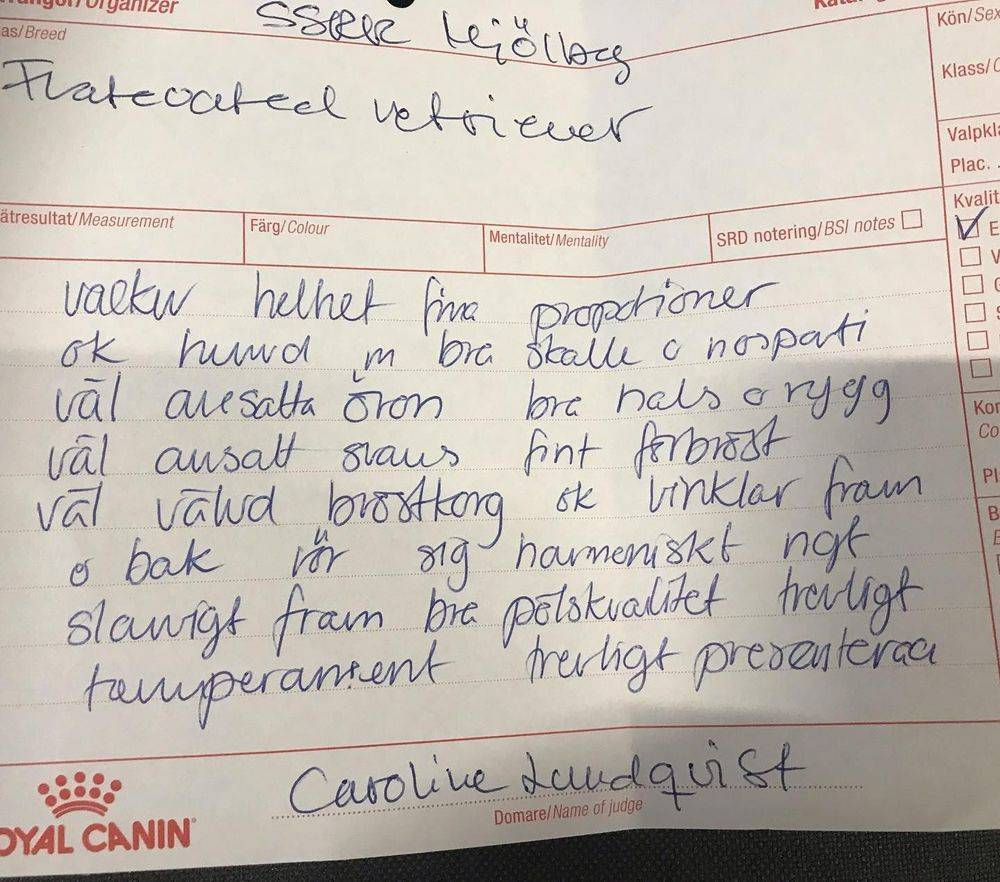 /Organizer
SSRK Mjölby
as/Breed
Flatcoated retriever
Kön/Sex
Klass/C
Valpkla
Plac.
ätresultat/Measurement
Färg/Colour
Mentalitet/Mentality
SRD notering/BSI notes
Kvalit
E
V
G
S
vacker helhet fina proportioner
ok huvud m bra skalle o nosparti
väl ansatta öron bra hals o rygg
väl ansatt svans fint förbröst
väl välvd bröstkorg ok vinklar fram
o bak rör sig harmoniskt ngt
slängigt fram bra pälskvalitet trevligt
temperament trevligt presenterad
Kor
Co
Pl
B
Caroline Lundqvist
Domare/Name of judge
OYAL CANIN